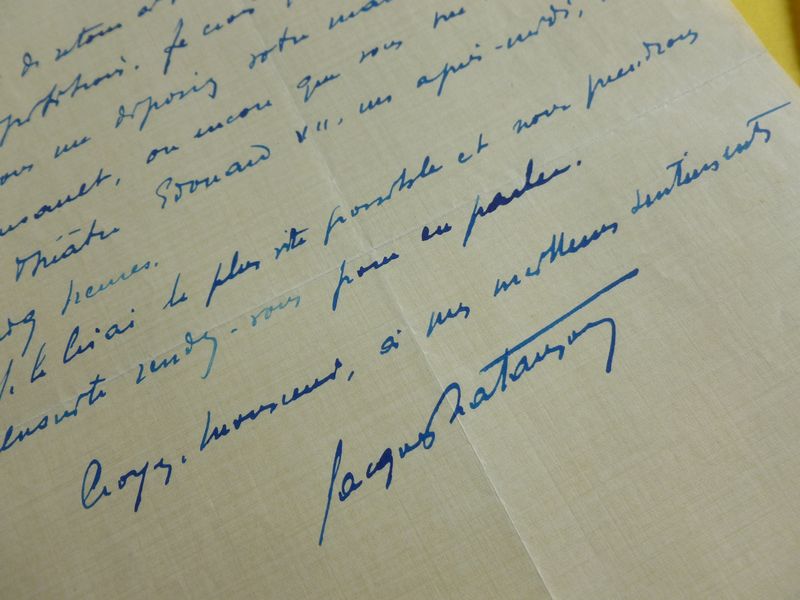 de retour
Je crois
déposiez votre
ou encore que vous me
théâtre Edouard VII, un après-midi,
heures.
Je le lirai le plus vite possible et nous prendrons
ensuite rendez-vous pour en parler.
Croyez, Monsieur, à mes meilleurs sentiments
Jacques Natanson